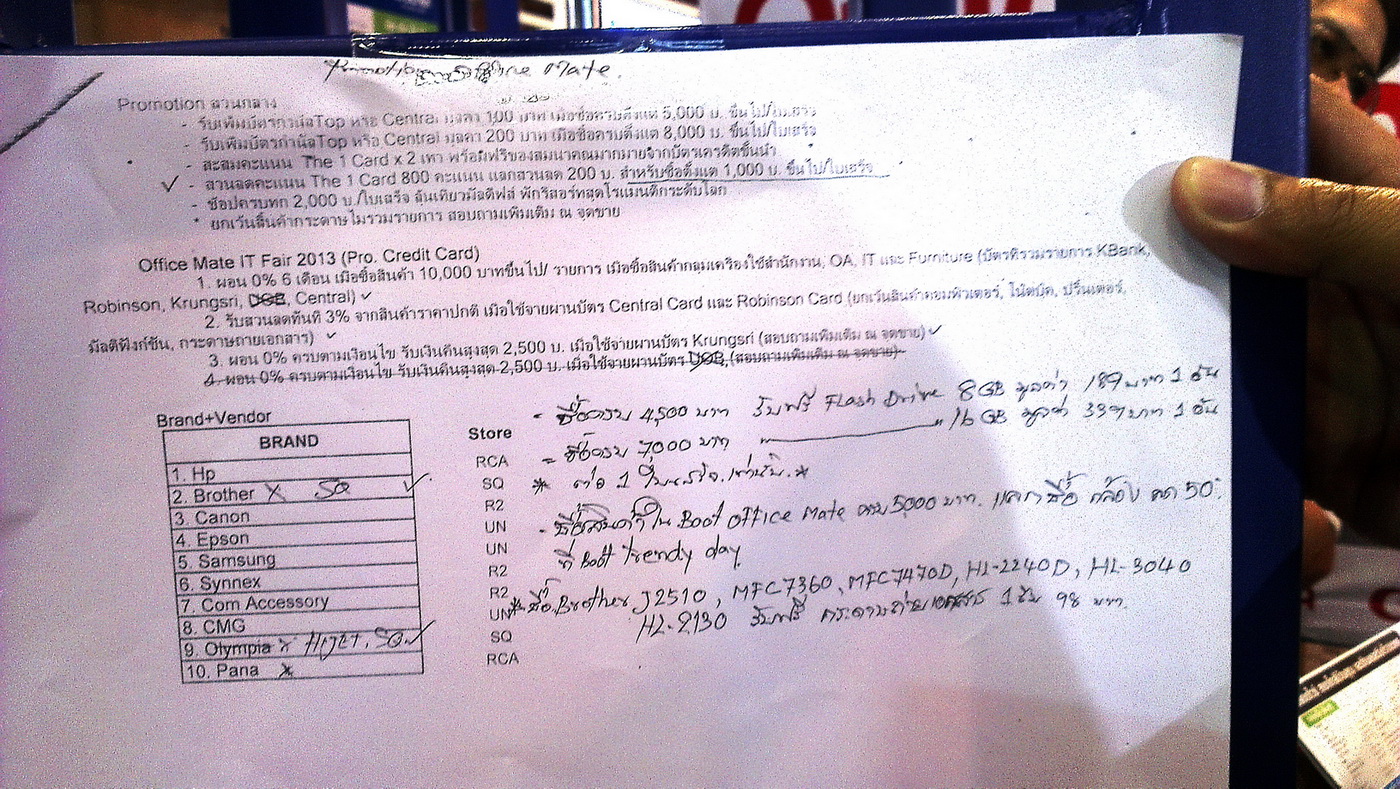 Promotion Office Mate.
Promotion ส่วนกลาง
- รับเพิ่มบัตรกำนัลTop หรือ Central มูลค่า 100 บาท เมื่อซื้อครบตั้งแต่ 5,000 บ. ขึ้นไป/ใบเสร็จ
- รับเพิ่มบัตรกำนัลTop หรือ Central มูลค่า 200 บาท เมื่อซื้อครบตั้งแต่ 8,000 บ. ขึ้นไป/ใบเสร็จ
- สะสมคะแนน The 1 Card x 2 เท่า พร้อมฟรีของสมนาคุณมากมายจากบัตรเครดิตชั้นนำ
✓ - ส่วนลดคะแนน The 1 Card 800 คะแนน แลกส่วนลด 200 บ. สำหรับซื้อตั้งแต่ 1,000 บ. ขึ้นไป/ใบเสร็จ
- ช้อปครบทุก 2,000 บ./ใบเสร็จ ลุ้นเที่ยวมัลดิฟส์ พักรีสอร์ทสุดโรแมนติกระดับโลก
* ยกเว้นสินค้ากระดาษไม่ร่วมรายการ สอบถามเพิ่มเติม ณ จุดขาย
Office Mate IT Fair 2013 (Pro. Credit Card)
1. ผ่อน 0% 6 เดือน เมื่อซื้อสินค้า 10,000 บาทขึ้นไป/ รายการ เมื่อซื้อสินค้ากลุ่มเครื่องใช้สำนักงาน, OA, IT และ Furniture (บัตรที่ร่วมรายการ KBank,
Robinson, Krungsri, UOB, Central) ✓
2. รับส่วนลดทันที 3% จากสินค้าราคาปกติ เมื่อใช้จ่ายผ่านบัตร Central Card และ Robinson Card (ยกเว้นสินค้าคอมพิวเตอร์, โน้ตบุ๊ค, ปริ้นเตอร์,
มัลติฟังก์ชั่น, กระดาษถ่ายเอกสาร) ✓
3. ผ่อน 0% ครบตามเงื่อนไข รับเงินคืนสูงสุด 2,500 บ. เมื่อใช้จ่ายผ่านบัตร Krungsri (สอบถามเพิ่มเติม ณ จุดขาย) ✓
4. ผ่อน 0% ครบตามเงื่อนไข รับเงินคืนสูงสุด 2,500 บ. เมื่อใช้จ่ายผ่านบัตร UOB (สอบถามเพิ่มเติม ณ จุดขาย)
Brand+Vendor
BRAND
1. Hp
2. Brother X SQ ✓
3. Canon
4. Epson
5. Samsung
6. Synnex
7. Com Accessory
8. CMG
9. Olympia x SQ ✓
10. Pana x
Store
RCA
SQ
R2
UN
UN
R2
R2
UN
SQ
RCA
- ซื้อครบ 4,500 บาท รับฟรี Flash Drive 8GB มูลค่า 189 บาท 1 อัน
- ซื้อครบ 7,000 บาท " 16 GB มูลค่า 339 บาท 1 อัน
* ต่อ 1 ใบเสร็จเท่านั้น *
- ซื้อสินค้าใน Boot office Mate ครบ 5000 บาท. แลกซื้อ กล้อง ลด 50%
ที่ Boot trendy day
* ซื้อ Brother J2510, MFC7360, MFC7470D, HL-2240D, HL-3040
HL-2130 รับฟรี กระดาษถ่ายเอกสาร 1 รีม 98 บาท.